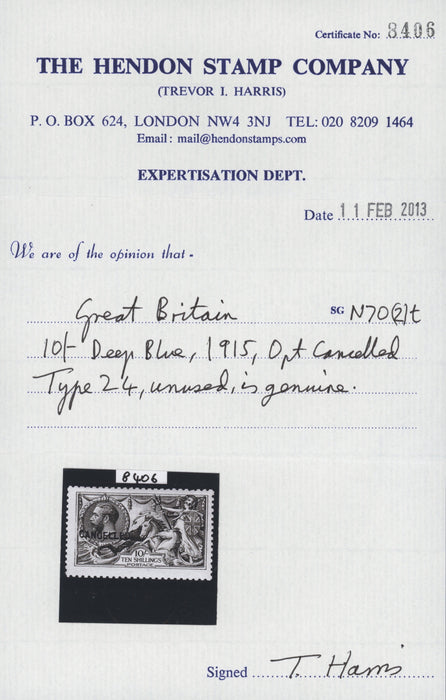 Certificate No: 8406
THE HENDON STAMP COMPANY
(TREVOR I. HARRIS)
P. O. BOX 624, LONDON NW4 3NJ TEL: 020 8209 1464
Email: mail@hendonstamps.com
EXPERTISATION DEPT.
Date 11 FEB 2013
We are of the opinion that -
Great Britain SG N70(2)t
10/- Deep Blue, 1915, Opt Cancelled
Type 24, unused, is genuine.
8406
CANCELLED
10/-
TEN SHILLINGS
POSTAGE
Signed T. Harris